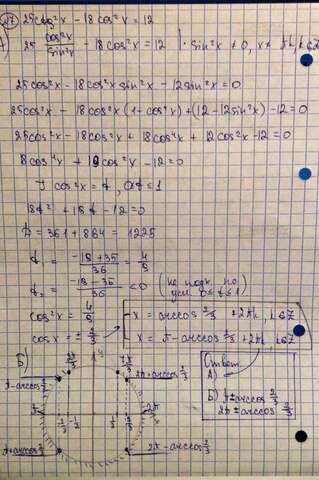 №7 25ctg²x - 18cos²x = 12
25 cos²x/sin²x - 18cos²x = 12 | · sin²x ≠ 0, x ≠ πk, k∈Z
25cos²x - 18cos²x sin²x - 12sin²x = 0
25cos²x - 18cos²x (1 - cos²x) + (12 - 12sin²x) - 12 = 0
25cos²x - 18cos²x + 18cos⁴x + 12cos²x - 12 = 0
8cos⁴x + 19cos²x - 12 = 0
cos²x = t, 0≤t≤1
18t² + 19t - 12 = 0
D = 361 + 864 = 1225
t₁ = (-19 + 35)/36 = 4/9
t₂ = (-19 - 35)/36 < 0 (не подх. по усл 0≤t≤1)
cos²x = 4/9
cos x = ± 2/3
x = arccos 2/3 + 2πk, k∈Z
x = π - arccos 2/3 + 2πk, k∈Z
Б)
Ответ
А)
Б) π ± arccos 2/3
2π ± arccos 2/3
π - arccos 2/3
2π + arccos 2/3
π + arccos 2/3
2π - arccos 2/3